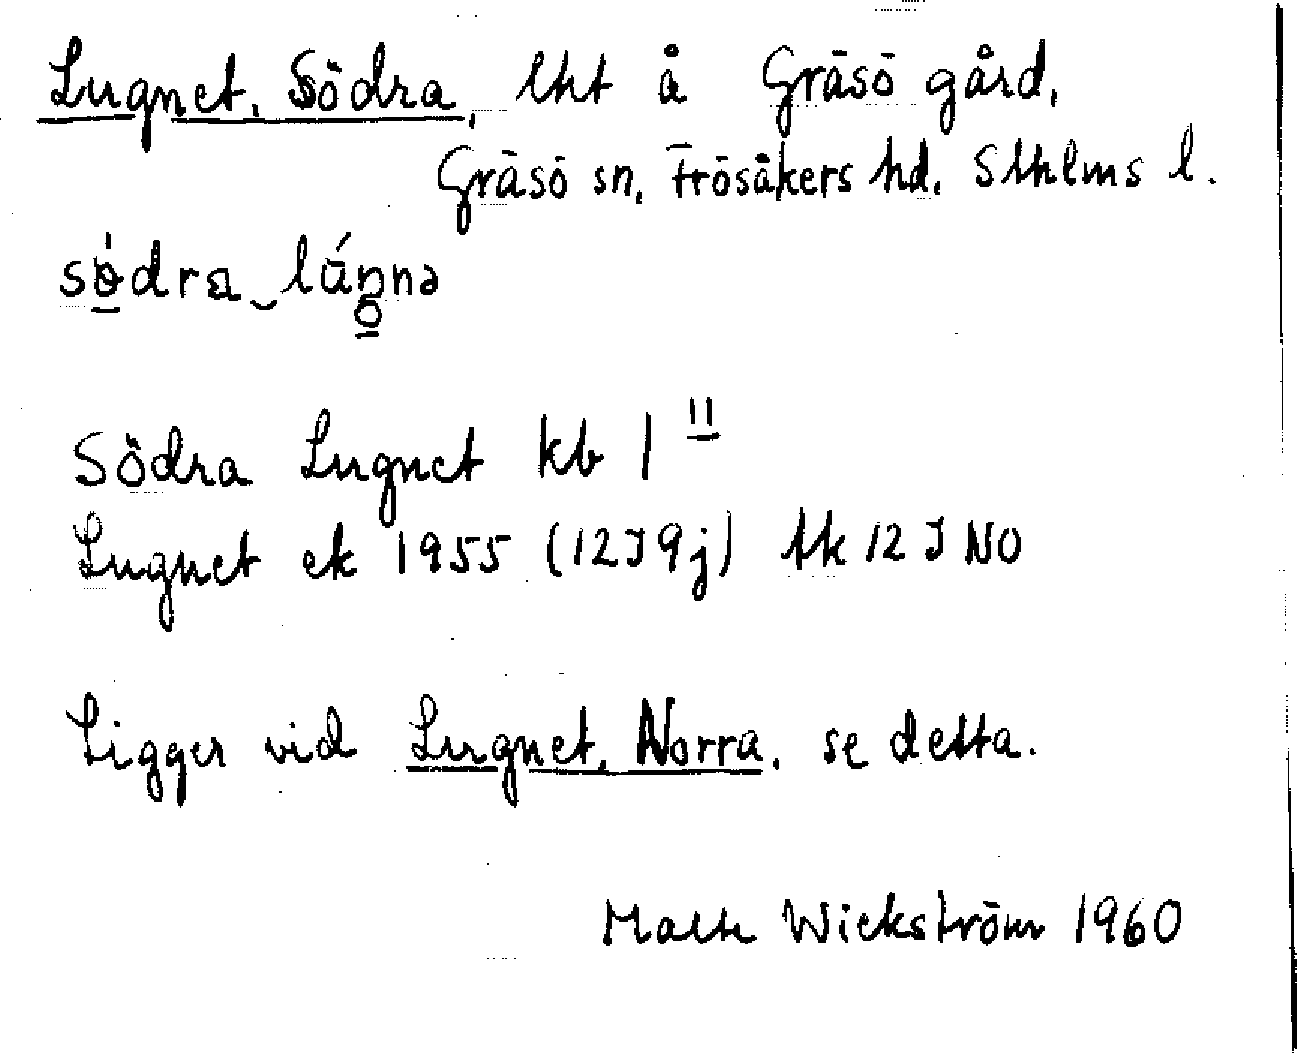 Lugnet, Södra, lht å Gräsö gård,
Gräsö sn, Frösåkers hd, Sthlms l.
södra
Södra Lugnet kb 1 II
Lugnet ek 1955 (12J9j) tk 12 J NO
Ligger vid Lugnet, Norra, se detta.
Malte Wickström 1960